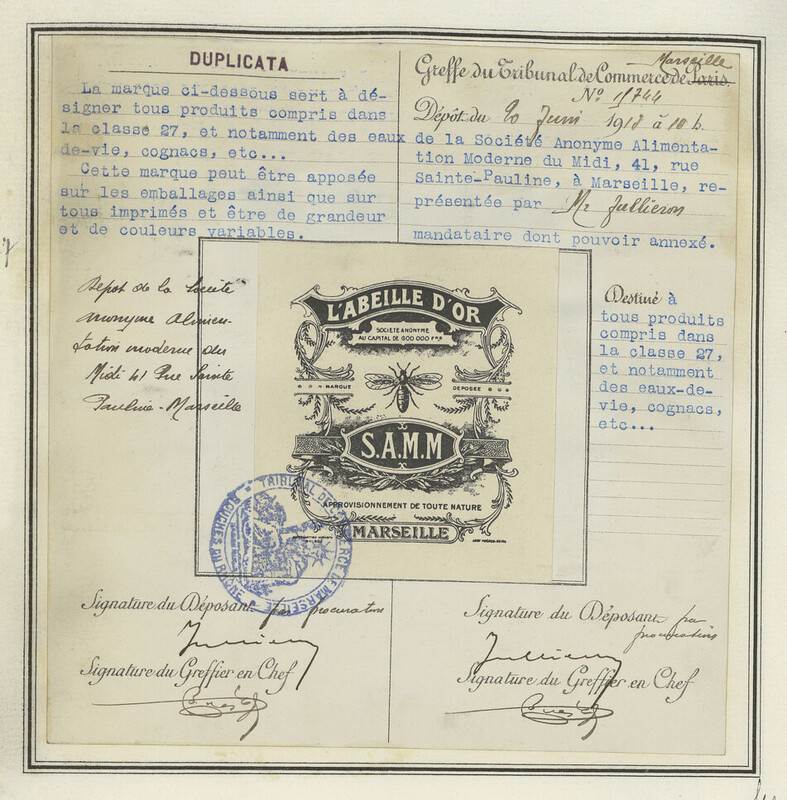 DUPLICATA
La marque ci-dessous sert à dé-
signer tous produits compris dans
la classe 27, et notamment des eaux
de-vie, cognacs, etc...
Cette marque peut être apposée
sur les emballages ainsi que sur
tous imprimés et être de grandeur
et de couleurs variables.
Marseille
Greffe du Tribunal de Commerce de Paris.
No 11744
Dépôt du 20 Juin 1918 à 10 h.
de la Société Anonyme Alimenta-
tion Moderne du Midi, 41, rue
Sainte-Pauline, à Marseille, re-
présentée par Mr Jullieron
mandataire dont pouvoir annexé.
Dépot de la Société
Anonyme Alimen-
tation moderne du
Midi 41 Rue Sainte
Pauline-Marseille
L'ABEILLE D'OR
SOCIÉTÉ ANONYME
AU CAPITAL DE 600 000 FRS
MARQUE DÉPOSÉE
S.A.M.M
APPROVISIONNEMENT DE TOUTE NATURE
MARSEILLE
Destiné à
tous produits
compris dans
la classe 27,
et notamment
des eaux-de-
vie, cognacs,
etc...
TRIBUNAL DE COMMERCE DE MARSEILLE
BOUCHES DU RHÔNE
Signature du Déposant par procuration
Signature du Greffier en Chef
Signature du Déposant par
procuration
Signature du Greffier en Chef